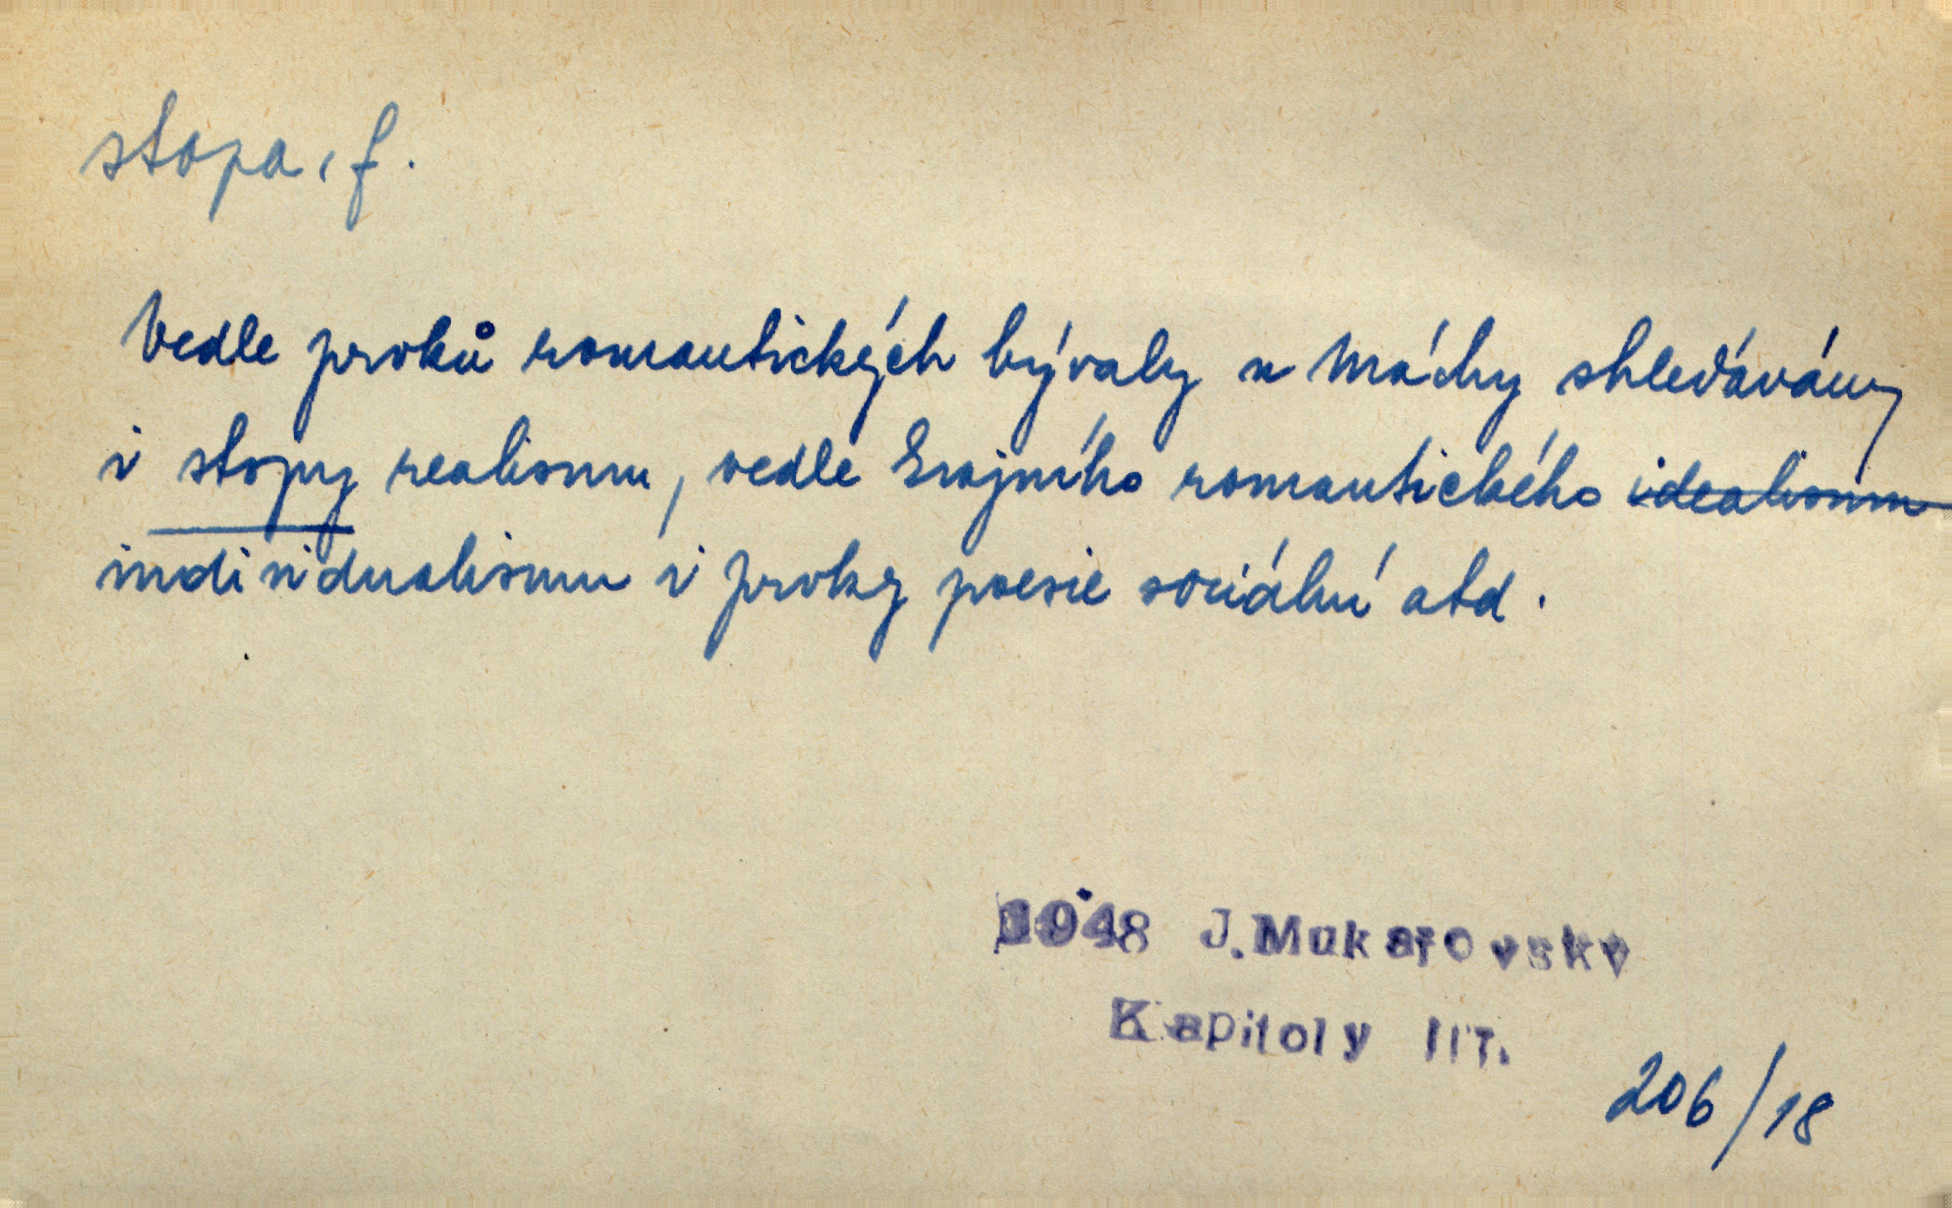 stopa, f.
Vedle prvků romantických bývaly u Máchy shledávány
i stopy realismu, vedle krajního romantického idealismu
individualismu i prvky poesie sociální atd.
1948 J.Mukařovský
Kapitoly III.
206/18